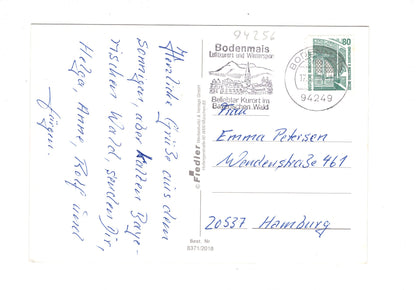 94256
Herzliche Grüße aus dem
sonnigen, aber kalten Baye-
rischen Wald, senden Dir,
Helga, Anne, Rolf und
Jürgen.
Bodenmais
Luftkurort und Wintersport
Beliebter Kurort im
Bayerischen Wald
80
94249
© Fiedler
Frau
Emma Petersen
Wendenstraße 461
20537 Hamburg
Best. Nr.
8371/2018